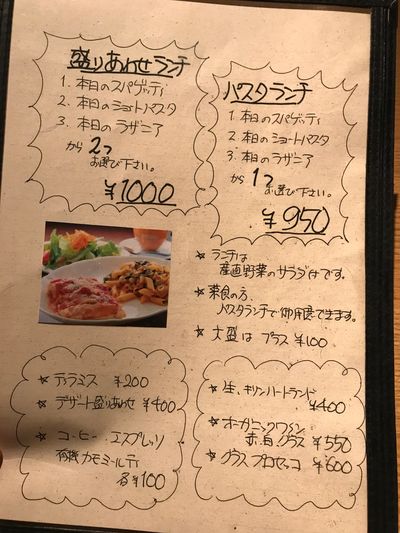 盛りあわせランチ
1. 本日のスパゲッティ
2. 本日のショートパスタ
3. 本日のラザニア
から 2つ
お選び下さい。
¥1000
パスタランチ
1 本日のスパゲッティ
2 本日のショートパスタ
3. 本日のラザニア
から 1つ
お選び下さい。
¥950
★ ランチは
産直野菜のサラダ付です。
★ 菜食の方、
パスタランチで御用意できます。
★ 大盛は プラス ¥100
☆ ティラミス ¥200
☆ デザート盛りあわせ ¥400
☆ コーヒー、エスプレッソ
有機カモミールティ
各¥100
☆ 生、キリンハートランド
¥400
☆ オーガニックワイン
赤、白 グラス ¥550
☆ グラス プロセッコ ¥600